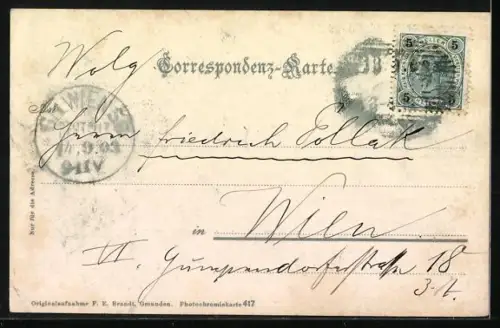 Correspondenz-Karte
5 5
5 5
An
Herrn Friedrich Pollak
9.03
9-11V
in Wien
VI. Gumpendorferstraße 18
Nur für die Adresse.
Originalaufnahme F. E. Brandt, Gmunden. Photochromiekarte 617